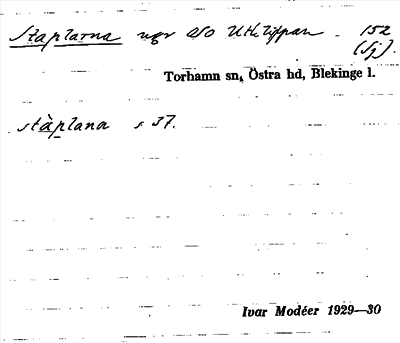 Staplarna ugr OSO Utklippan. 152
(Sj).
Torhamn sn, Östra hd, Blekinge l.
stàplana s 37.
Ivar Modéer 1929—30